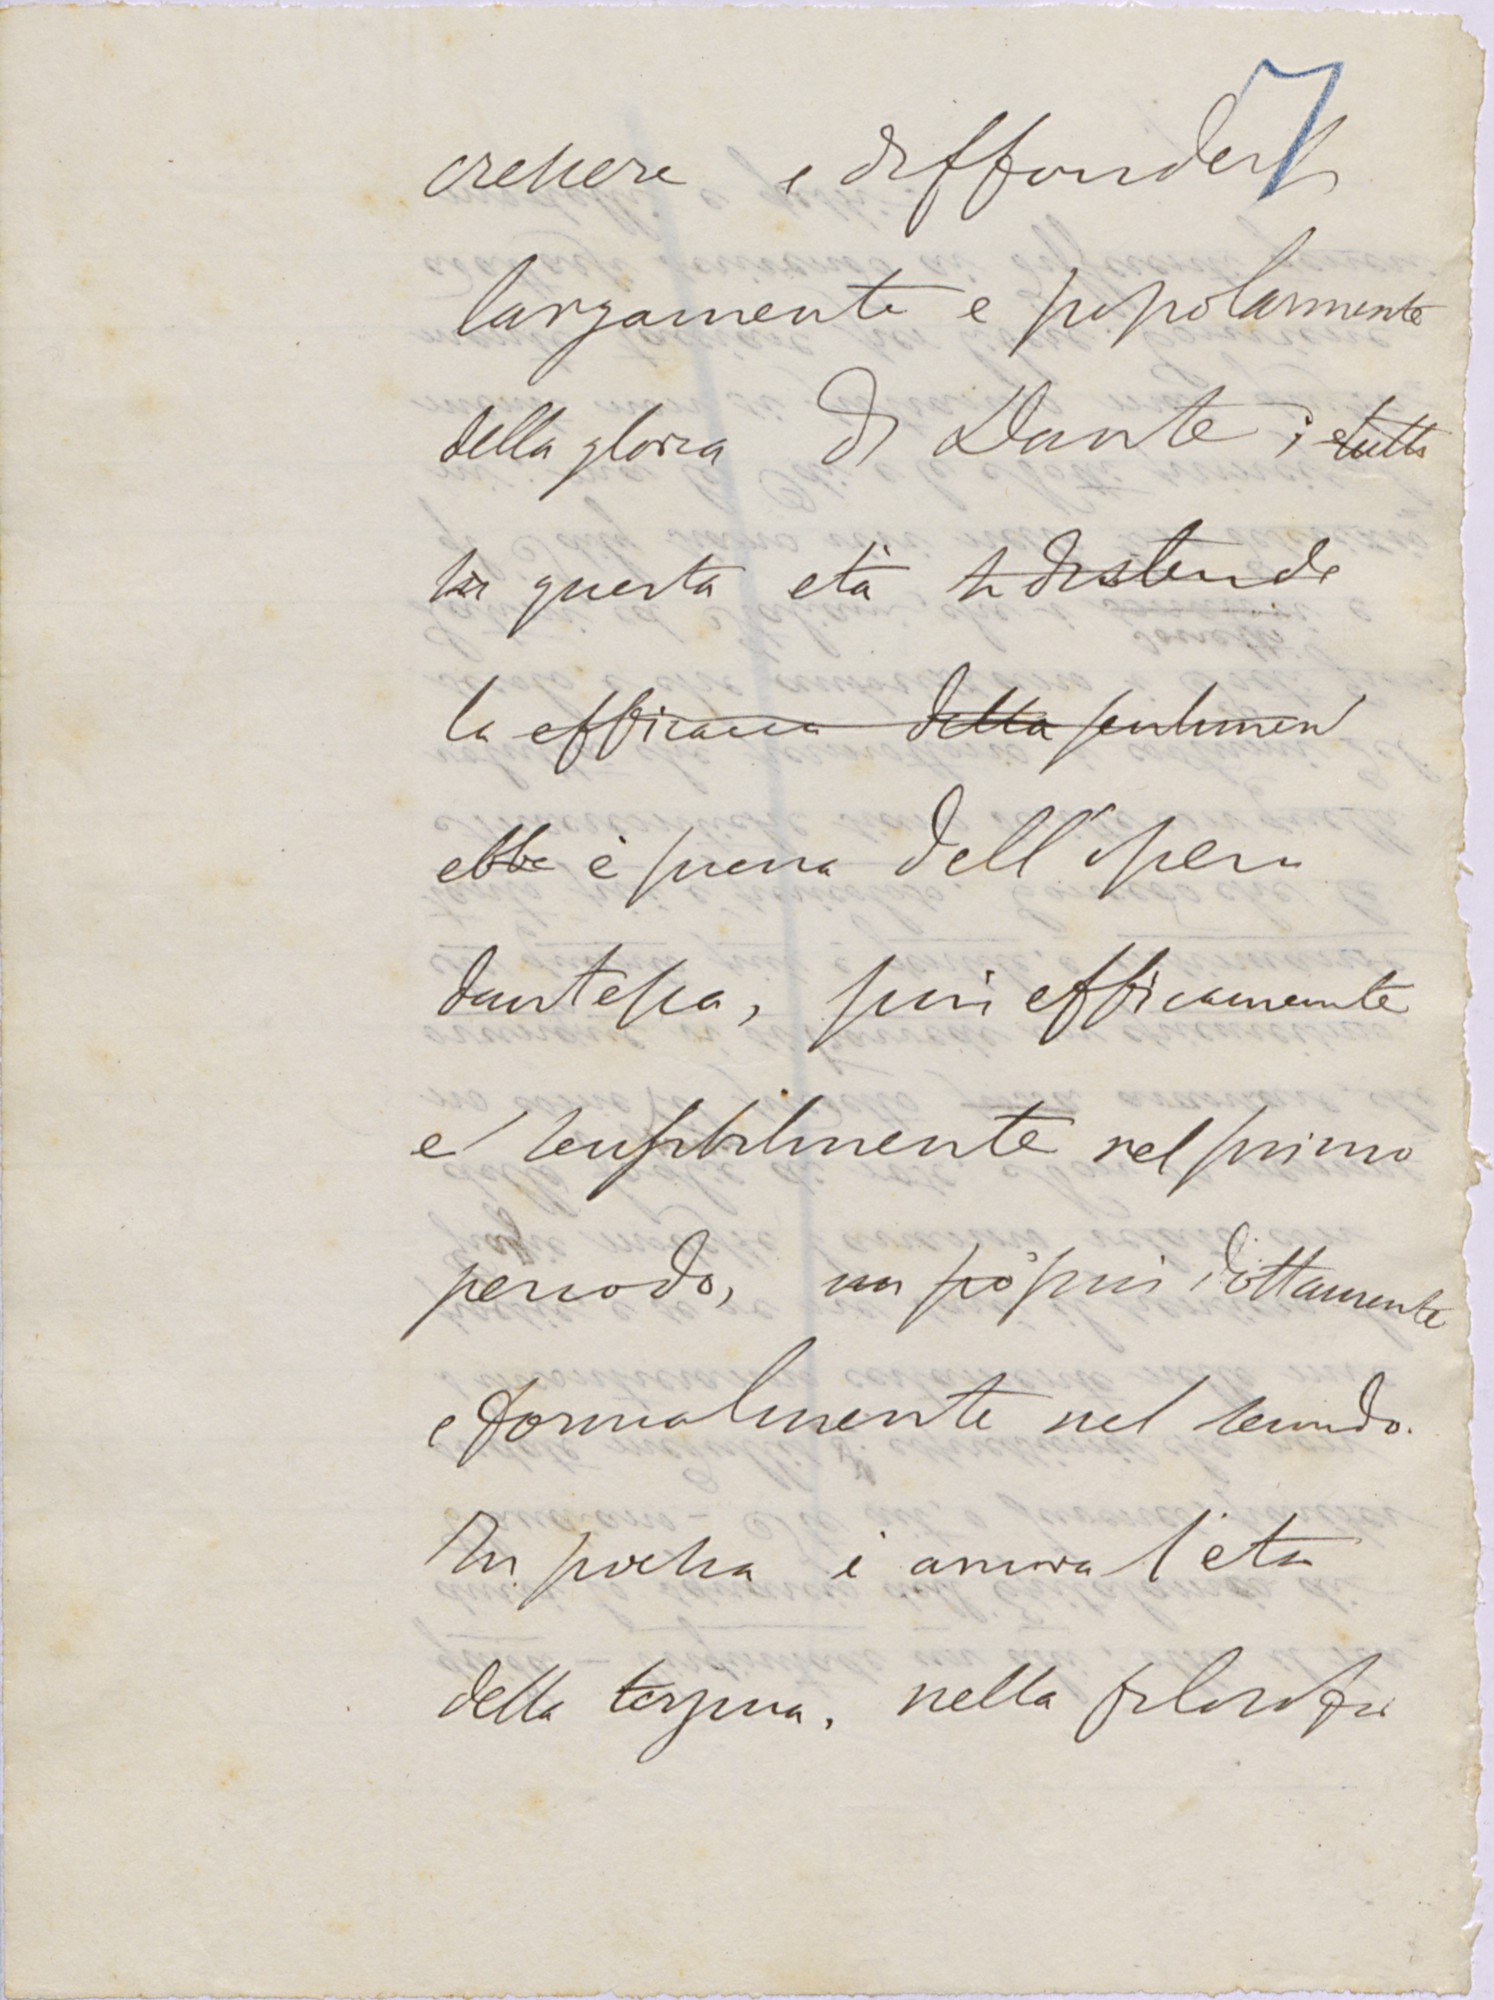 7
crescere e diffondersi
largamente e popolarmente
della gloria di Dante; e tutta
questa età si distende
la efficacia della sentimen
ebbe è piena dell'opera
dantesca, più efficacemente
e sensibilmente nel primo
periodo, un po' più dottamente
e formalmente nel secondo.
In poesia è ancora l'età
della terzina, nella filosofia